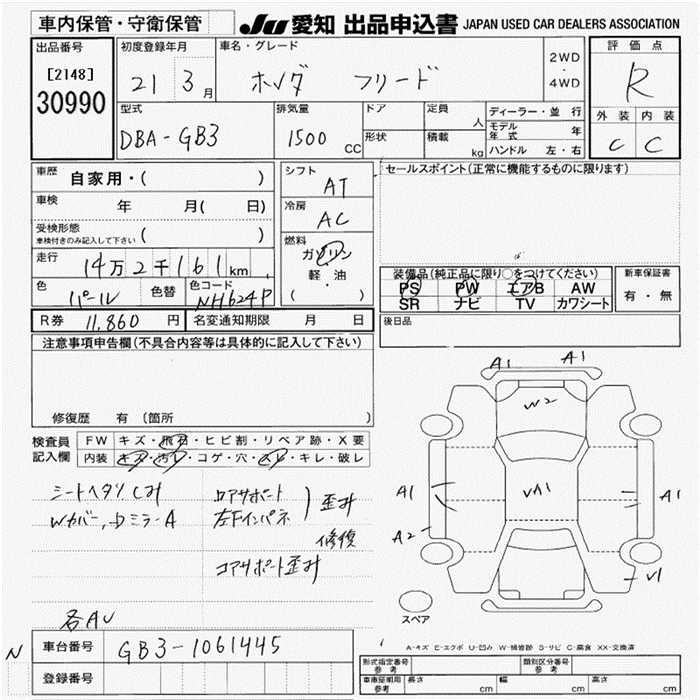 車内保管・守衛保管
JU 愛知 出品申込書 JAPAN USED CAR DEALERS ASSOCIATION
出品番号 [2148] 30990
初度登録年月 21 3月
車名・グレード ホンダ フリード
2WD・4WD
評価点 R
型式 DBA-GB3
排気量 1500 CC
ドア
形状
定員 人
積載 kg
ディーラー・並 行
モデル年式 年
ハンドル 左・右
外装 内装
C C
車歴 自家用・( )
車検 年 月( 日)
受検形態 ( )
車検付きのみ記入して下さい
走行 14万2千161km
色 パール 色替 色コード NH624P
シフト AT
冷房 AC
燃料 ガソリン
軽・油
・( )
セールスポイント(正常に機能するものに限ります)
装備品(純正品に限り○をつけてください)
PS PW エアB AW
SR ナビ TV カワシート
新車保証書
有・無
R券 11,860 円 名変通知期限 月 日
後日品
注意事項申告欄(不具合内容等は具体的に記入して下さい)
修復歴 有 (箇所 )
検査員記入欄
FW キズ・飛石・ヒビ割・リペア跡・X要
内装 キズ・汚レ・コゲ・穴・スレ・キレ・破レ
シートヘタリ シミ
Wカバー、ドミラーA
ロアサポート
左Fインパネ
歪み
修復
コアサポート歪み
各AU
A1 A1
W2
A1 VA1 A1
A2
V1
スペア
N 車台番号 GB3-1061445
登録番号
A-キズ E-エクボ U-凹み W-補修跡 S-サビ C-腐食 XX-交換済
形式指定番号 参考 類別区分番号 参考
車庫証明用 参考 長さ cm 幅 cm 高さ cm